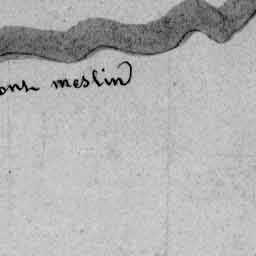 ont meslin